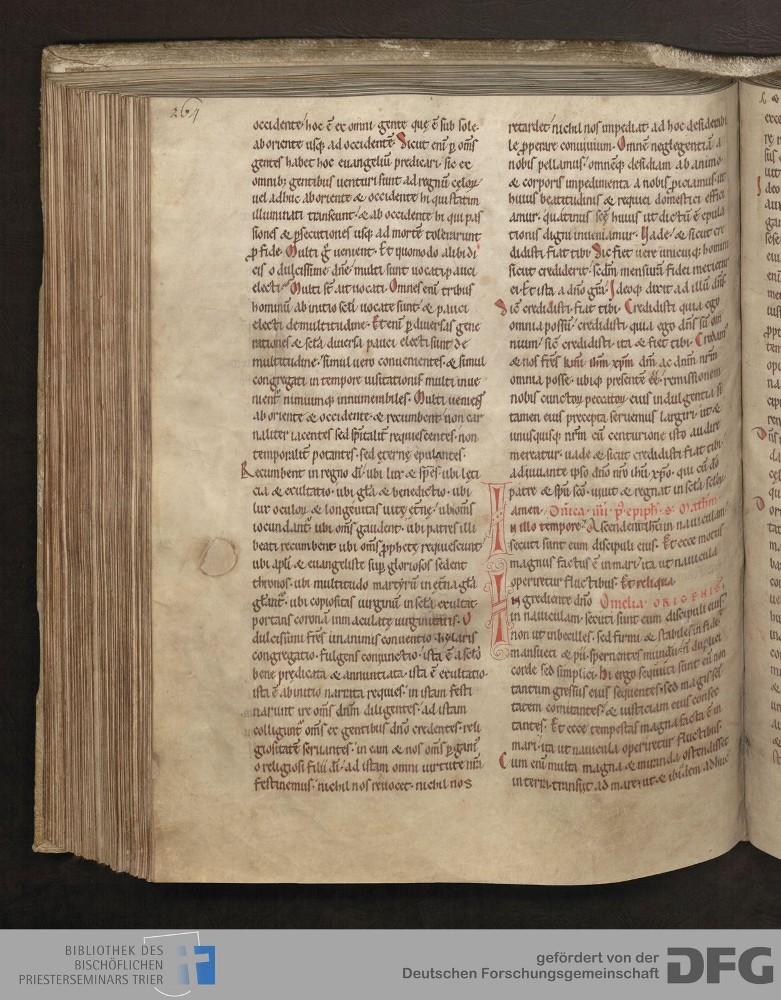 264
occidente/ hoc ē ex omni gente quę ē sub sole·
ab oriente usq; ad occidentē· Sicut enī ꝑ om̄s
gentes habet hoc euangeliū predicari· sic ex
omnib; gentibus uenturi sunt ad regnū celoꝝ/
uel adhuc ab oriente & occidente hi qui statim
illuminati transeunt/ & ab occidente hi qui pas
siones & ꝑsecutiones usq; ad mortē tolerarunt
ꝓ fide· Multi ḡ uenient· Et quomodo alibi di
cis o dulcissime dn̄e/ multi sunt uocati pauci
electi· Multi st̄ ait uocati· Omnes enī tribus
hominū ab initio sc̄li uocate sunt/ & pauci
electi de multitudine· Et enī ꝑ diuersas gene
rationes & sc̄la diuersa pauci electi sunt de
multitudine· simul uero conuenientes· & simul
congregati in tempore uisitationis multi inue
nient̄ nimiumq; innumerabiles· Multi uenient
ab oriente & occidente· & recumbent non car
naliter iacentes sed sp̄italit̄ requiescentes· non
temporalit̄ potantes· sed ęterne epulantes·
Recumbent in regno dī· ubi lux & spes· ubi lęti
cia & exultatio· ubi gl̄a & benedictio· ubi
lux oculoꝝ & longeuitas uitę ęt̄nę· ubi om̄s
iocundant̄· ubi om̄s gaudent· ubi patres illi
beati recumbent· ubi om̄s ꝓphetę requiescunt/
ubi apl̄i & euangelistę suꝑ gloriosos sedent
thronos· ubi multitudo martyrū in et̄na gl̄a
gl̄ant̄· ubi copiositas uirginū in sc̄la exultat
portans coronā inmaculatę uirginitatis· O
dulcissimi fr̄es unanimis conuentio· hylaris
congregatio· fulgens coniunctio· ista ē a sc̄lo
bene predicata & annuntiata· ista ē exultatio·
ista ē ab initio narrata requies· in istam festi
narunt ire om̄s dn̄m diligentes· ad istam
colligunt̄ om̄s ex gentibus dn̄o credentes· reli
giositatē seruantes· in eam & nos om̄s ꝑgam̄
o religiosi filii dī· ad istam omni uirtute nr̄a
festinemus· nichil nos reuocet· nichil nos
retardet/ nichil nos impediat· ad hoc desiderabi
le ꝓperare conuiuium· Omnē neglegentiā a
nobis pellamus/ omnēq; desidiam ab animo·
& corporis impedimenta a nobis ꝓiciamus· ut
huius beatitudinis & requiei domestici effici
amur· quatinus seq; huius ut dictū ē epula
tionis digni inueniamur· Uade/ & sicut cre
didisti fiat tibi· Sic fiet uere unicuiq; homini
sicut crediderit· sedm̄ mensurā fidei metietur
ei· Et ista a dn̄o gr̄a· Ideoq; dixit ad illū dn̄s·
Sic credidisti fiat tibi· Credidisti quia ego
omnia possū/ credidisti quia ego dn̄s sū om
nium/ sic credidisti ita & fiet tibi· Credam;
& nos fr̄es kmī ih̄m xp̄m dm̄ ac dnm̄ nr̄m
omnia posse· ubiq; presentē eē/ remissionem
nobis cunctoꝝ peccatoꝝ eius indulgentia si
tamen eius precepta seruemus largiri· ut &
unusquisq; nr̄m cū centurione isto audire
mereatur· uade & sicut credidisti fiat tibi·
adiuuante ipso dn̄o nr̄o ih̄u xp̄o· qui cū dō
patre & spū sc̄o· uiuit & regnat in sc̄la sc̄loꝝ
amen· Dn̄ica· iiii· p̄ epiph̄· s· Mathm̄·
IN illo tempore· Ascendente ih̄u in nauiculam
secuti sunt eum discipuli eius· Et ecce motus
magnus factus ē in mari/ ita ut nauicula
operiretur fluctibus· Et reliqua·
INgrediente dn̄o Omelia ORIGENIS·
in nauiculam· secuti sunt eum discipuli eius·
non ut inbecilles· sed firmi & stabiles in fide·
mansueti & pii· spernentes mundū· n̄ duplici
corde sed simplici· Hi ergo sequuti sunt eū non
tantum gressus eius sequentes· sed magis sc̄i
tatem comitantes/ & iusticiam eius consec
tantes· Et ecce tempestas magna facta ē in
mari/ ita ut nauicula operiretur fluctibus·
Cum enī multa magna & miranda ostendisset
in terra· transiit ad mare· ut & ibidem adhuc
BIBLIOTHEK DES
BISCHÖFLICHEN
PRIESTERSEMINARS TRIER
gefördert von der
Deutschen Forschungsgemeinschaft
DFG